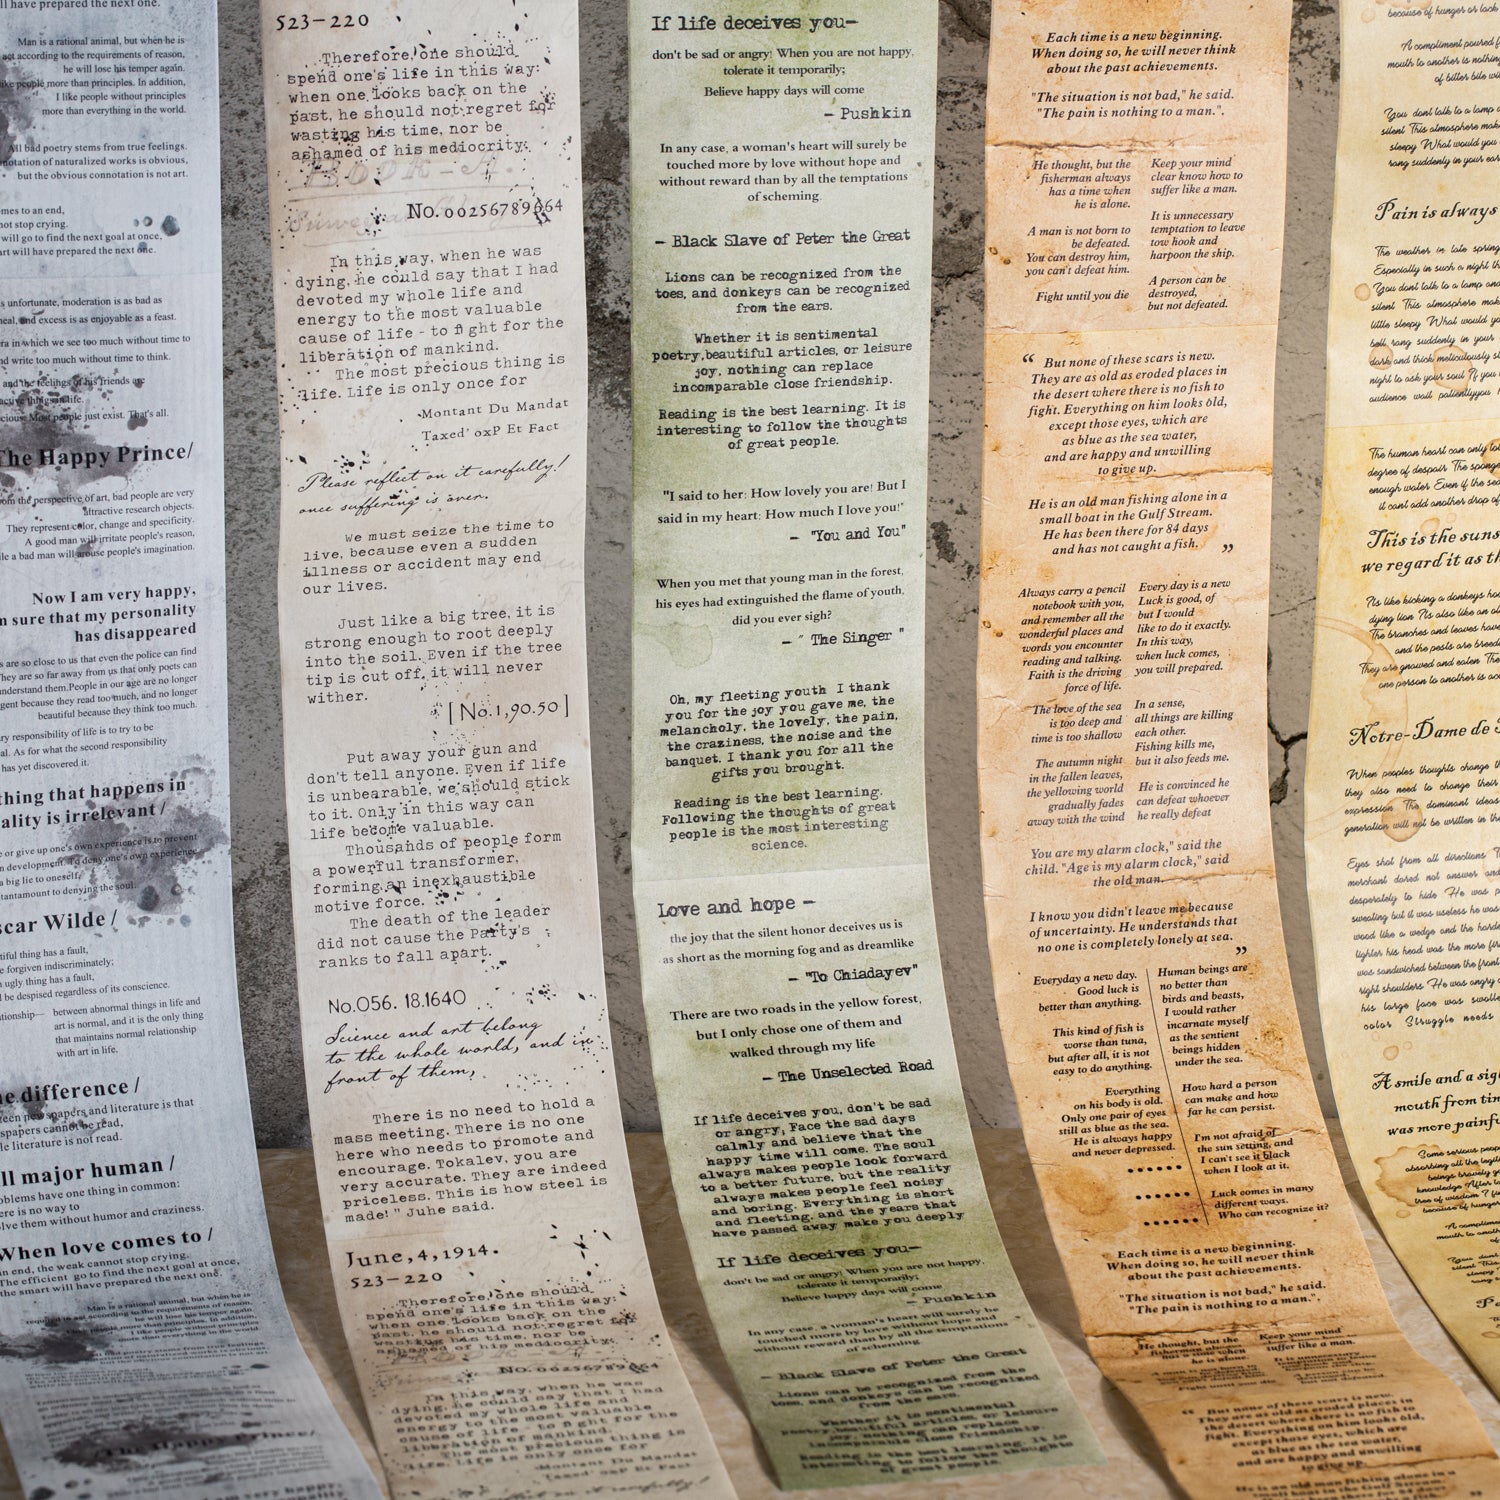 ll have prepared the next one.
Man is a rational animal, but when he is
act according to the requirements of reason,
he will lose his temper again.
like people more than principles. In addition,
I like people without principles
more than everything in the world.
All bad poetry stems from true feelings.
notation of naturalized works is obvious,
but the obvious connotation is not art.
omes to an end,
not stop crying.
will go to find the next goal at once,
art will have prepared the next one.
s unfortunate, moderation is as bad as
meal, and excess is as enjoyable as a feast.
ra in which we see too much without time to
nd write too much without time to think.
and the feelings of his friends are
active things in life.
cious. Most people just exist. That's all.
The Happy Prince/
rom the perspective of art, bad people are very
attractive research objects.
They represent color, change and specificity.
A good man will irritate people's reason,
ile a bad man will arouse people's imagination.
Now I am very happy,
m sure that my personality
has disappeared
s are so close to us that even the police can find
They are so far away from us that only poets can
understand them.People in our age are no longer
gent because they read too much, and no longer
beautiful because they think too much.
ry responsibility of life is to try to be
al. As for what the second responsibility
has yet discovered it.
thing that happens in
ality is irrelevant /
e or give up one's own experience is to prevent
n development. To deny one's own experience
a big lie to oneself,
tantamount to denying the soul.
scar Wilde /
tiful thing has a fault,
e forgiven indiscriminately;
n ugly thing has a fault,
l be despised regardless of its conscience.
ationship— between abnormal things in life and
art is normal, and it is the only thing
that maintains normal relationship
with art in life.
he difference /
een newspapers and literature is that
spapers cannot be read,
le literature is not read.
ll major human /
oblems have one thing in common:
ere is no way to
olve them without humor and craziness.
When love comes to /
n end, the weak cannot stop crying.
The efficient go to find the next goal at once,
the smart will have prepared the next one.
Man is a rational animal, but when he is
required to act according to the requirements of reason,
he will lose his temper again
people more than principles. In addition,
I like people without principles
than everything in the world.
The Happy Prince/
523-220
Therefore, one should
spend one's life in this way:
when one looks back on the
past, he should not regret for
wasting his time, nor be
ashamed of his mediocrity;
No.00256789664
In this way, when he was
dying, he could say that I had
devoted my whole life and
energy to the most valuable
cause of life - to fight for the
liberation of mankind.
The most precious thing is
life. Life is only once for
Montant Du Mandat
Taxed' oxP Et Fact
Please reflect on it carefully!
once suffering is over.
We must seize the time to
live, because even a sudden
illness or accident may end
our lives.
Just like a big tree, it is
strong enough to root deeply
into the soil. Even if the tree
tip is cut off, it will never
wither.
[No.1,90.50]
Put away your gun and
don't tell anyone. Even if life
is unbearable, we should stick
to it. Only in this way can
life become valuable.
Thousands of people form
a powerful transformer,
forming an inexhaustible
motive force.
The death of the leader
did not cause the Party's
ranks to fall apart.
No.056. 18.1640
Science and art belong
to the whole world, and in
front of them,
There is no need to hold a
mass meeting. There is no one
here who needs to promote and
encourage. Tokalev, you are
very accurate. They are indeed
priceless. This is how steel is
made! " Juhe said.
June,4,1914.
523-220
Therefore, one should
spend one's life in this way:
when one looks back on the
past, he should not regret for
wasting his time, nor be
ashamed of his mediocrity;
No.00256789664
In this way, when he was
dying, he could say that I had
devoted my whole life and
energy to the most valuable
cause of life - to fight for the
liberation of mankind.
The most precious thing is
life. Life is only once for
Montant Du Mandat
Taxed' oxP Et Fact
If life deceives you—
don't be sad or angry! When you are not happy,
tolerate it temporarily;
Believe happy days will come
— Pushkin
In any case, a woman's heart will surely be
touched more by love without hope and
without reward than by all the temptations
of scheming.
— Black Slave of Peter the Great
Lions can be recognized from the
toes, and donkeys can be recognized
from the ears.
Whether it is sentimental
poetry,beautiful articles, or leisure
joy, nothing can replace
incomparable close friendship.
Reading is the best learning. It is
interesting to follow the thoughts
of great people.
"I said to her: How lovely you are! But I
said in my heart: How much I love you!"
— "You and You"
When you met that young man in the forest,
his eyes had extinguished the flame of youth,
did you ever sigh?
— " The Singer "
Oh, my fleeting youth I thank
you for the joy you gave me, the
melancholy, the lovely, the pain,
the craziness, the noise and the
banquet. I thank you for all the
gifts you brought.
Reading is the best learning.
Following the thoughts of great
people is the most interesting
science.
Love and hope —
the joy that the silent honor deceives us is
as short as the morning fog and as dreamlike
— "To Chiadayev"
There are two roads in the yellow forest,
but I only chose one of them and
walked through my life
— The Unselected Road
If life deceives you, don't be sad
or angry, Face the sad days
calmly and believe that the
happy time will come. The soul
always makes people look forward
to a better future, but the reality
always makes people feel noisy
and boring. Everything is short
and fleeting, and the years that
have passed away make you deeply
If life deceives you—
don't be sad or angry! When you are not happy,
tolerate it temporarily;
Believe happy days will come
— Pushkin
In any case, a woman's heart will surely be
touched more by love without hope and
without reward than by all the temptations
of scheming.
— Black Slave of Peter the Great
Lions can be recognized from the
toes, and donkeys can be recognized
from the ears.
Whether it is sentimental
poetry,beautiful articles, or leisure
joy, nothing can replace
incomparable close friendship.
Reading is the best learning. It is
interesting to follow the thoughts
of great people.
Each time is a new beginning.
When doing so, he will never think
about the past achievements.
"The situation is not bad," he said.
"The pain is nothing to a man.".
He thought, but the
fisherman always
has a time when
he is alone.
A man is not born to
be defeated.
You can destroy him,
you can't defeat him.
Fight until you die
Keep your mind
clear know how to
suffer like a man.
It is unnecessary
temptation to leave
tow hook and
harpoon the ship.
A person can be
destroyed,
but not defeated.
“ But none of these scars is new.
They are as old as eroded places in
the desert where there is no fish to
fight. Everything on him looks old,
except those eyes, which are
as blue as the sea water,
and are happy and unwilling
to give up.
He is an old man fishing alone in a
small boat in the Gulf Stream.
He has been there for 84 days
and has not caught a fish. ”
Always carry a pencil
notebook with you,
and remember all the
wonderful places and
words you encounter
reading and talking.
Faith is the driving
force of life.
The love of the sea
is too deep and
time is too shallow
The autumn night
in the fallen leaves,
the yellowing world
gradually fades
away with the wind
Every day is a new
Luck is good, of
but I would
like to do it exactly.
In this way,
when luck comes,
you will prepared.
In a sense,
all things are killing
each other.
Fishing kills me,
but it also feeds me.
He is convinced he
can defeat whoever
he really defeat
You are my alarm clock," said the
child. "Age is my alarm clock," said
the old man.
I know you didn't leave me because
of uncertainty. He understands that
no one is completely lonely at sea. ”
Everyday a new day.
Good luck is
better than anything.
This kind of fish is
worse than tuna,
but after all, it is not
easy to do anything.
Everything
on his body is old.
Only one pair of eyes
still as blue as the sea.
He is always happy
and never depressed.
••••••
••••••
••••••
Human beings are
no better than
birds and beasts,
I would rather
incarnate myself
as the sentient
beings hidden
under the sea.
How hard a person
can make and how
far he can persist.
I'm not afraid of
the sun setting, and
I can't see it black
when I look at it.
Luck comes in many
different ways.
Who can recognize it?
Each time is a new beginning.
When doing so, he will never think
about the past achievements.
"The situation is not bad," he said.
"The pain is nothing to a man.".
He thought, but the
fisherman always
has a time when
he is alone.
Keep your mind
suffer like a man.
Fight until you die
“ But none of these scars is new.
They are as old as eroded places in
the desert where there is no fish to
fight. Everything on him looks old,
except those eyes, which are
as blue as the sea water,
and are happy and unwilling
to give up.
He is an old man fishing alone in a
small boat in the Gulf Stream.
He has been there for 84 days
because of hunger or lack
A compliment poured f
mouth to another is nothing
of bitter bile wi
You dont talk to a lamp a
silent This atmosphere mak
sleepy What would you
rang suddenly in your ears
Pain is always
The weather in late spring
Especially in such a night th
You dont talk to a lamp and
silent This atmosphere make
little sleepy What would yo
bell rang suddenly in your
dark and thick meticulously s
night to ask your soul If you
audience wait patientlyyou
The human heart can only to
degree of despair The sponge
enough water Even if the sea
it cant add another drop of
This is the suns
we regard it as th
Its like kicking a donkeys hoo
dying lion Its also like an ol
The branches and leaves have
and the pests are breed
They are gnawed and eaten The
one person to another is acc
Notre-Dame de
When peoples thoughts change th
they also need to change their
expression The dominant ideas
generation will not be written in the
Eyes shot from all directions T
merchant dared not answer and
desperately to hide He was p
sweating but it was useless he was
wood like a wedge and the harde
tighter his head was the more fir
was sandwiched between the front
right shoulders He was angry a
his large face was swolle
color Struggle needs
A smile and a sig
mouth from tim
was more painfu
Some serious peop
absorbing all the legit
beings bravely g
knowledge After t
tree of wisdom I f
because of hunger
A complime
mouth to anoth
You don
silent This
sleepy
Pa